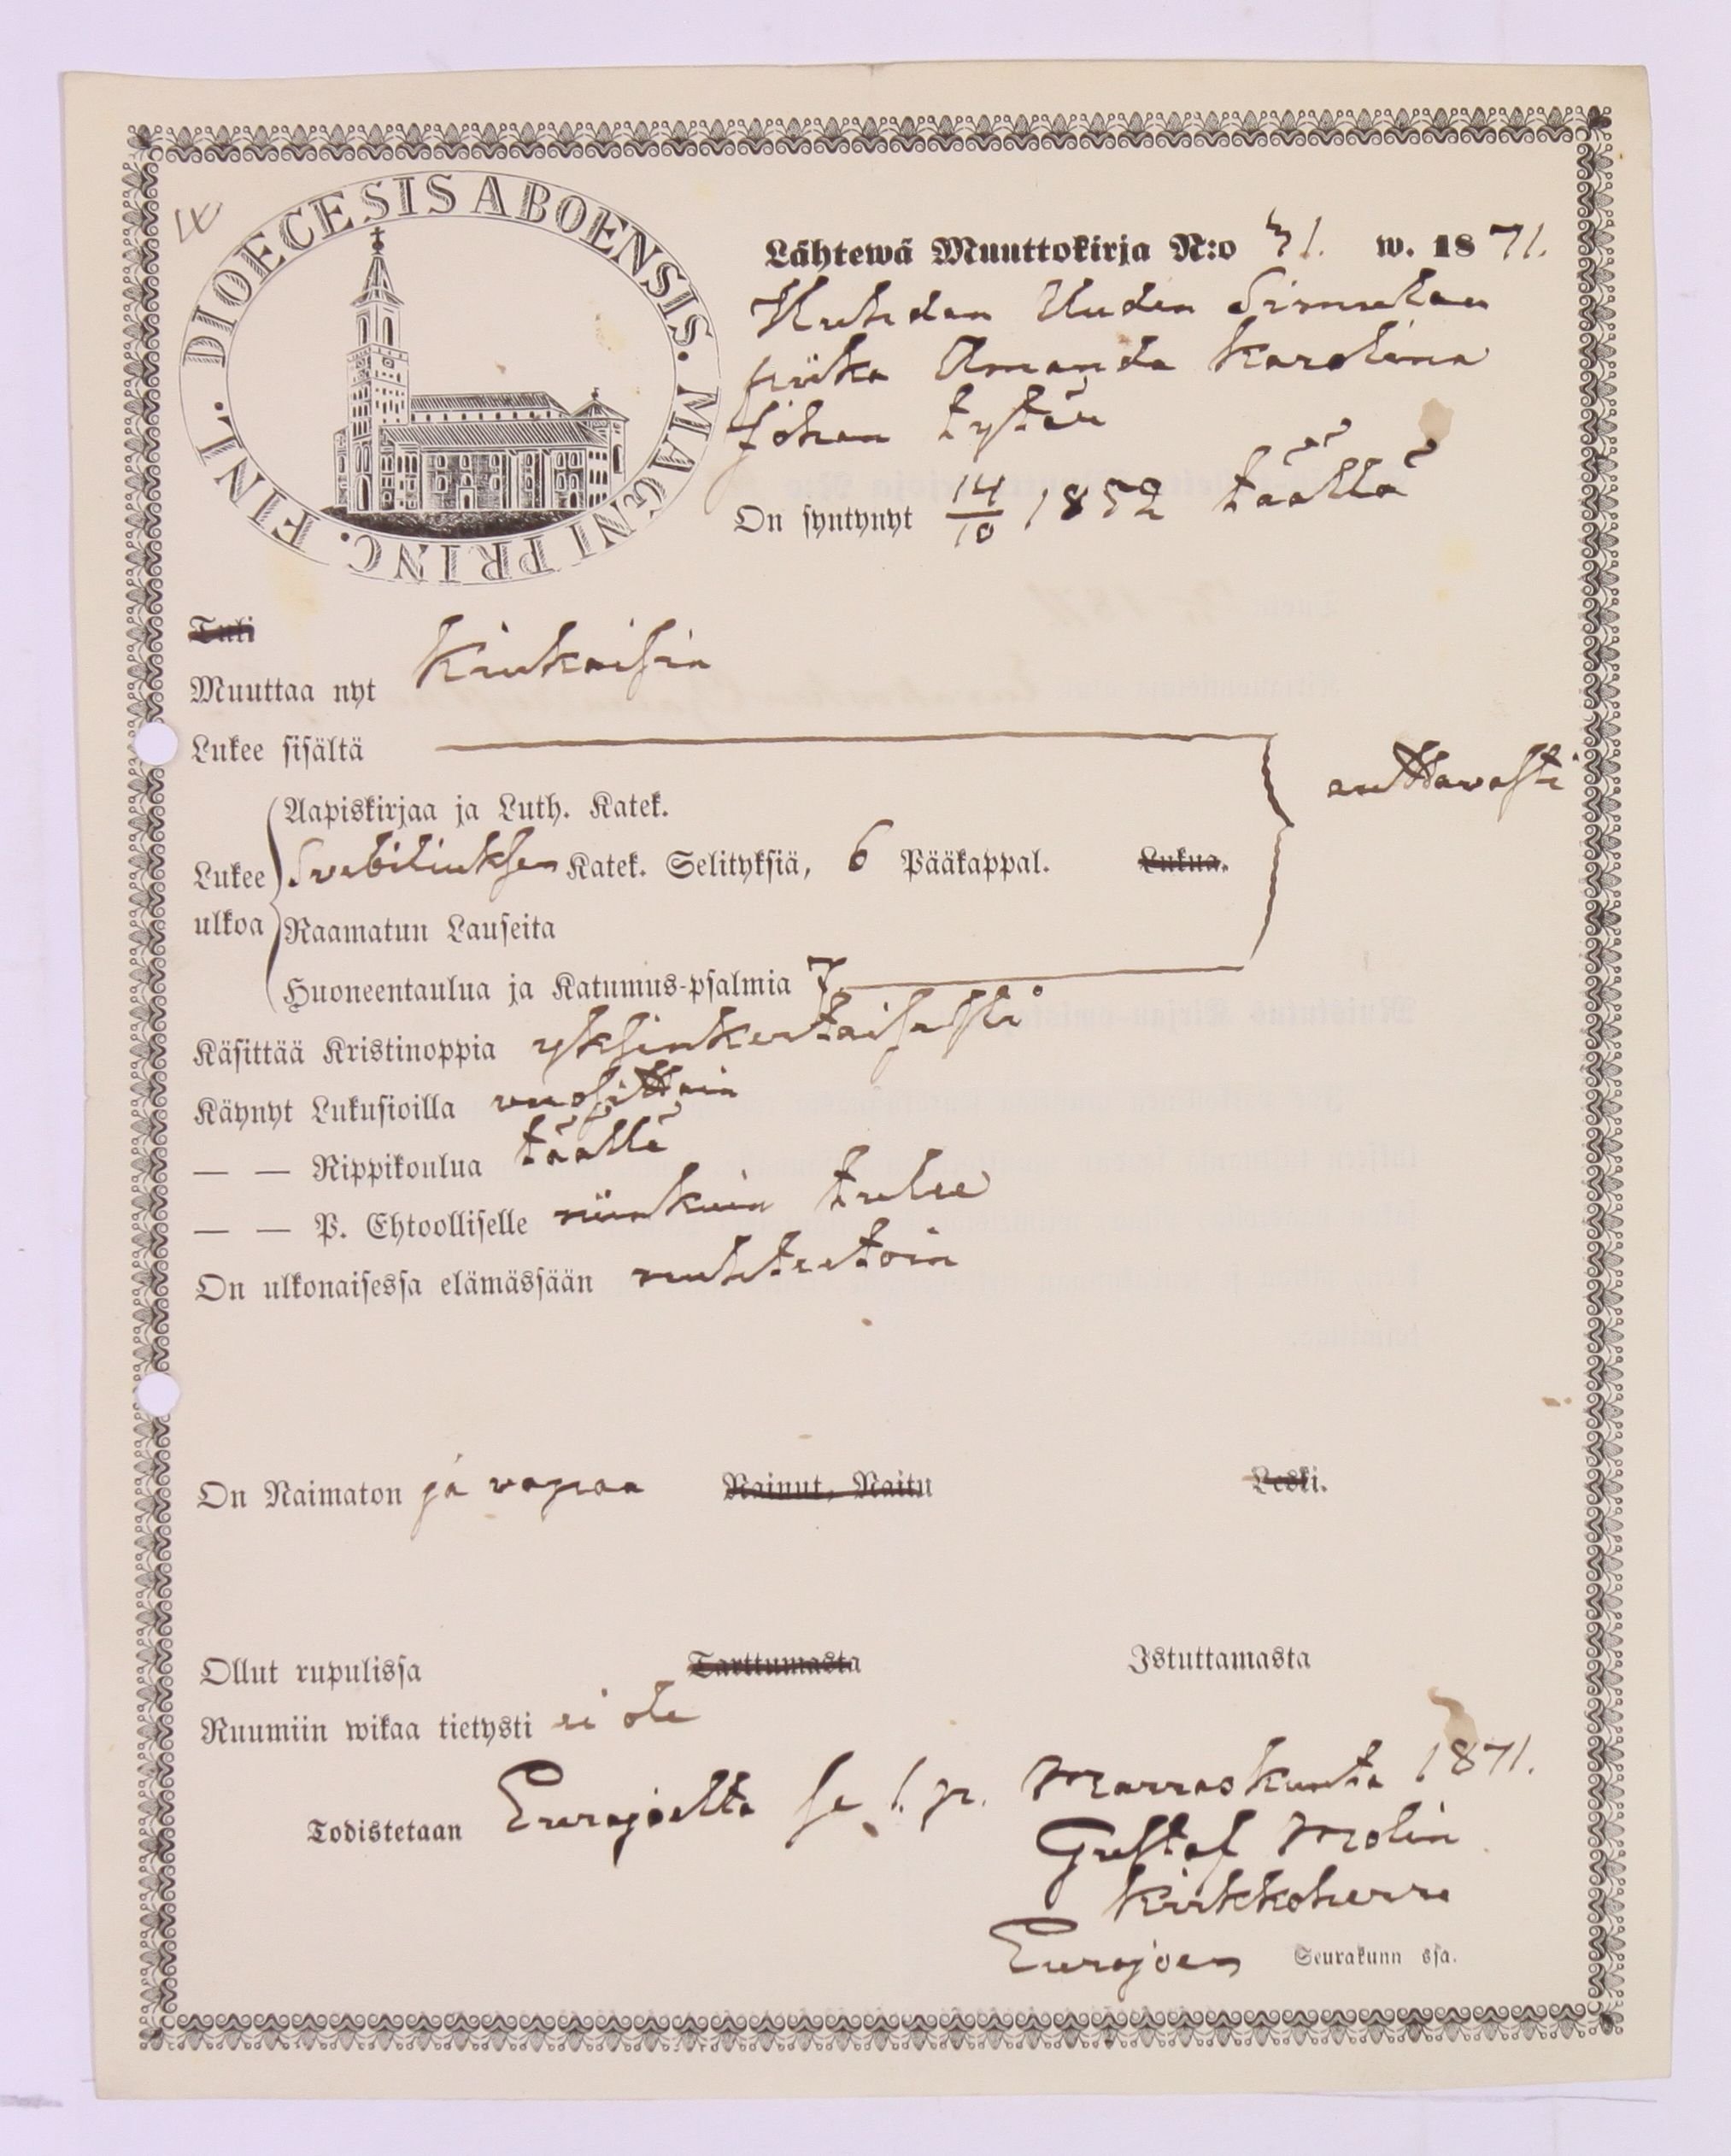 DIOECESIS ABOENSIS. MAGNI PRINC. FINL.
Lähtewä Muuttokirja N:o 31. w. 1871.
Kuhdan Uuden Simulan
piika Amanda Karolina
Johan tytär
On syntynyt 14/10 1852 täällä
Tuli
Muuttaa nyt Kiukaisiin
Lukee sisältä
auttavasti
Aapiskirjaa ja Luth. Katek.
Lukee Svebiliuksen Katek. Selityksiä, 6 Pääkappal. Lukua.
ulkoa Raamatun Lauseita
Huoneentaulua ja Katumus-psalmia 7
Käsittää Kristinoppia yksinkertaisesti
Käynyt Lukusioilla vuosittain
— — Rippikoulua täällä
— — P. Ehtoolliselle niinkuin tulee
On ulkonaisessa elämässään nuhteetoin
On Naimaton ja vapaa Nainut, Naitu Leski.
Ollut rupulissa Tarttumasta Istuttamasta
Ruumiin wikaa tietysti ei ole
Todistetaan Eurajoelta se 1. p. Marraskuuta 1871.
Gustaf Molin
Kirkkoherra
Eurajoen Seurakunn ssa.